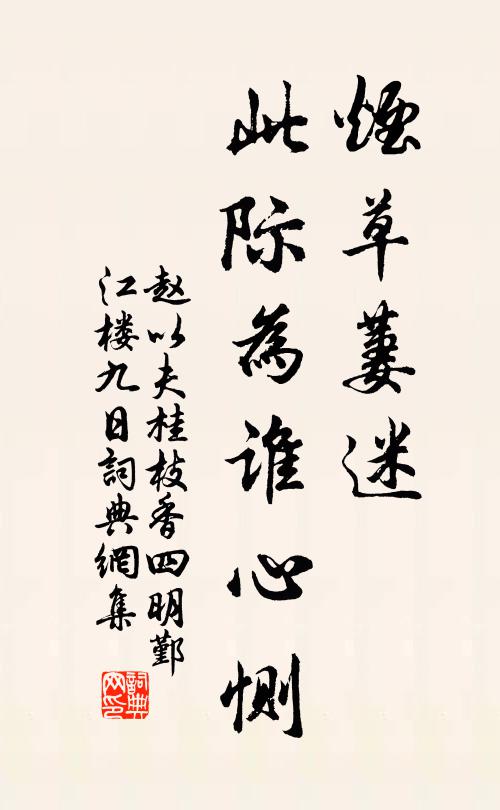 煙草萋迷
此际為谁心恻
赵以夫桂枝香四明鄞
江楼九日詞典網集
詞典
网印